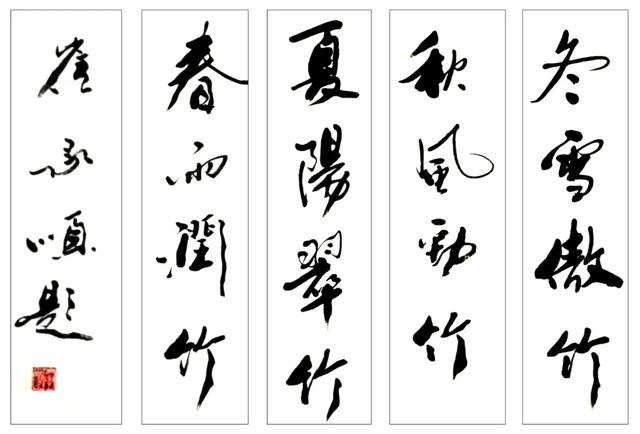 冬雪傲竹
秋風勁竹
夏陽翠竹
春雨潤竹
崔承順題